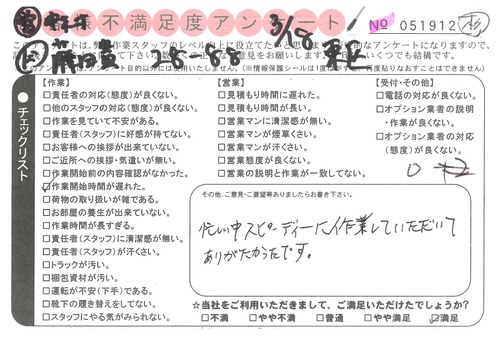 お客様不満足度アンケート
No 051912
3/18
このアンケートは、弊社作業スタッフのレベル向上に役立てたいと
的なアンケートになりますので、
いくつでも結構です。
チェックリスト
【作業】
□責任者の対応(態度)が良くない。
□他のスタッフの対応(態度)が良くない。
□作業を見ていて不安がある。
□責任者(スタッフ)に好感が持てない。
□お客様への挨拶が出来ていない。
□ご近所への挨拶・気遣いが無い。
□作業開始前の内容確認がなかった。
☑作業開始時間が遅れた。
□荷物の取り扱いが雑である。
□お部屋の養生が出来ていない。
□作業時間が長すぎる。
□責任者(スタッフ)に清潔感が無い。
□責任者(スタッフ)が汗くさい。
□トラックが汚い。
□梱包資材が汚い。
□運転が不安(下手)である。
□靴下の履き替えをしてない。
□スタッフにやる気がみられない。
【営業】
□見積もり時間に遅れた。
□見積もり時間が長い。
□営業マンに清潔感が無い。
□営業マンが煙草くさい。
□営業マンが汗くさい。
□営業態度が良くない。
□営業の説明と作業が一致してない。
【受付・その他】
□電話の対応が良くない。
□オプション業者の説明
・作業が良くない。
□オプション業者の対応
(態度)が良くない。
その他、ご意見・ご要望等ありましたらお書き下さい。
忙しい中スピーディーに作業していただいて
ありがたかったです。
☆当社をご利用いただきまして、ご満足いただけたでしょうか?
□不満 □やや不満 □普通 □やや満足 ☑満足